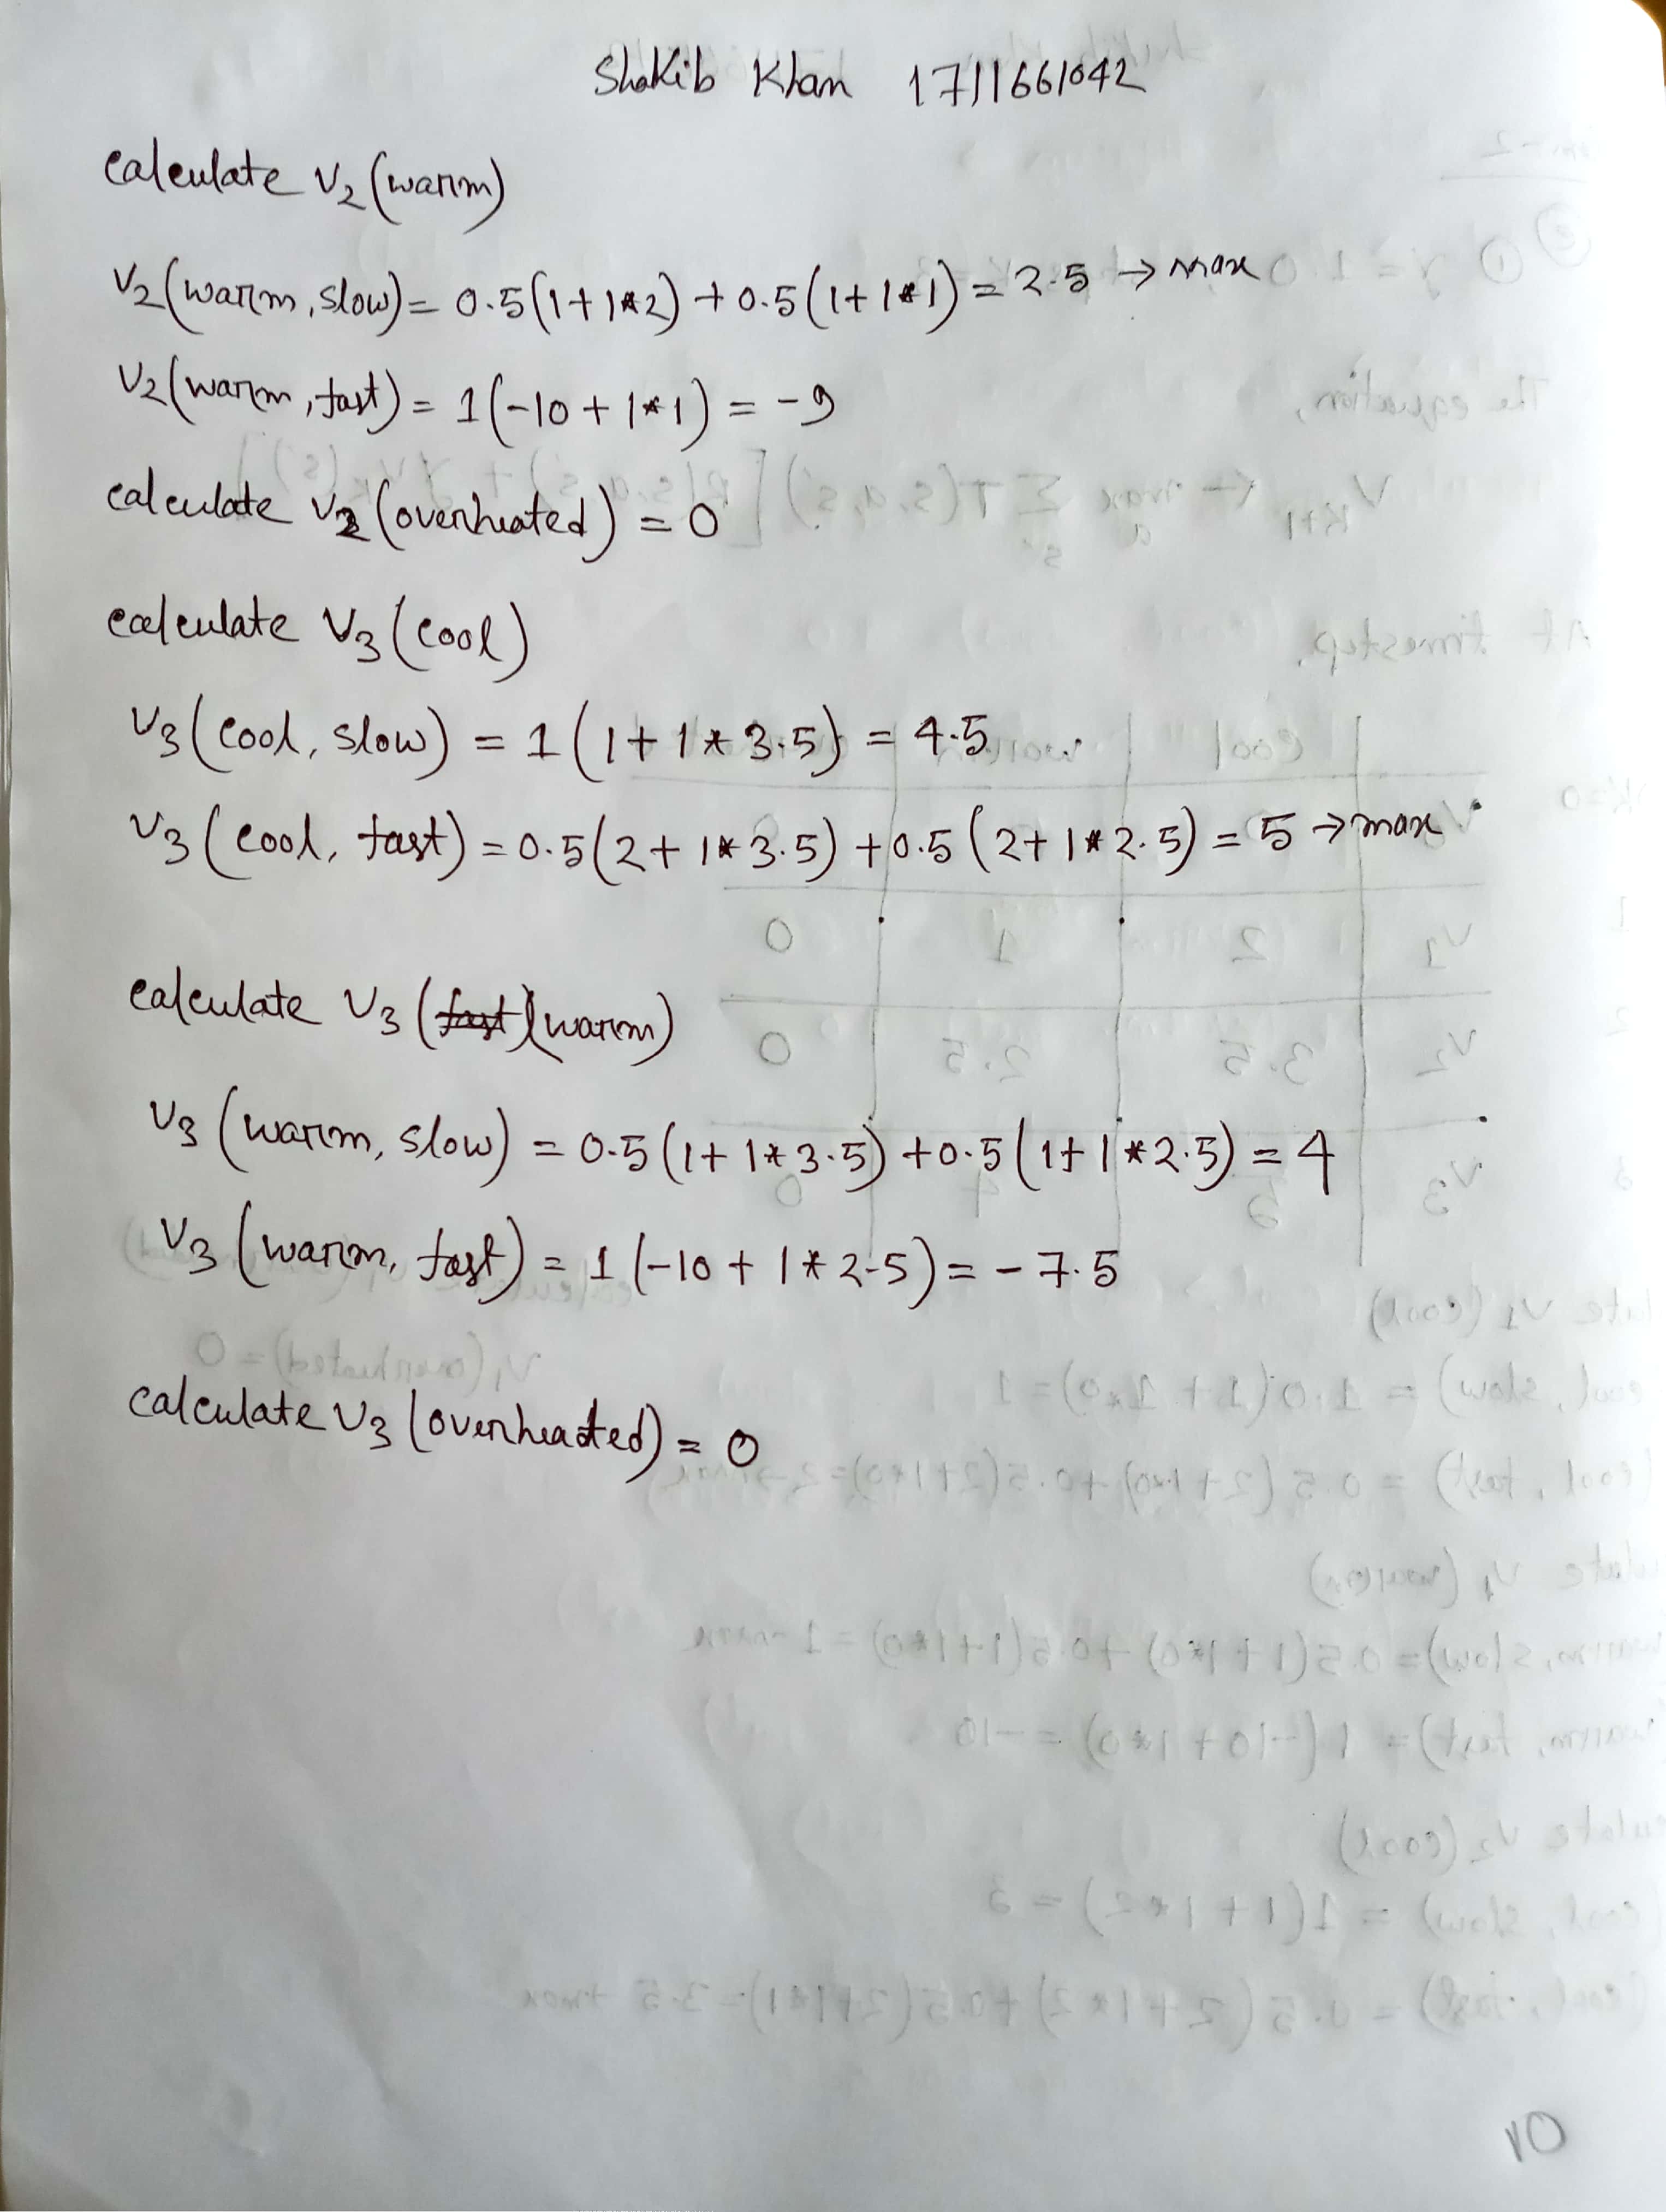 Shakib Khan 1711661042
calculate V₂ (warm)
V₂ (warm, slow) = 0.5(1+1*2) + 0.5(1+1*1) = 2.5 → max
V₂ (warm, fast) = 1(-10+1*1) = -9
calculate V₂ (overheated) = 0
calculate V₃ (cool)
V₃ (cool, slow) = 1(1+1*3.5) = 4.5
V₃ (cool, fast) = 0.5(2+1*3.5) + 0.5(2+1*2.5) = 5 → max
calculate V₃ (fast) (warm)
V₃ (warm, slow) = 0.5(1+1*3.5) + 0.5(1+1*2.5) = 4
V₃ (warm, fast) = 1(-10+1*2.5) = -7.5
calculate V₃ (overheated) = 0